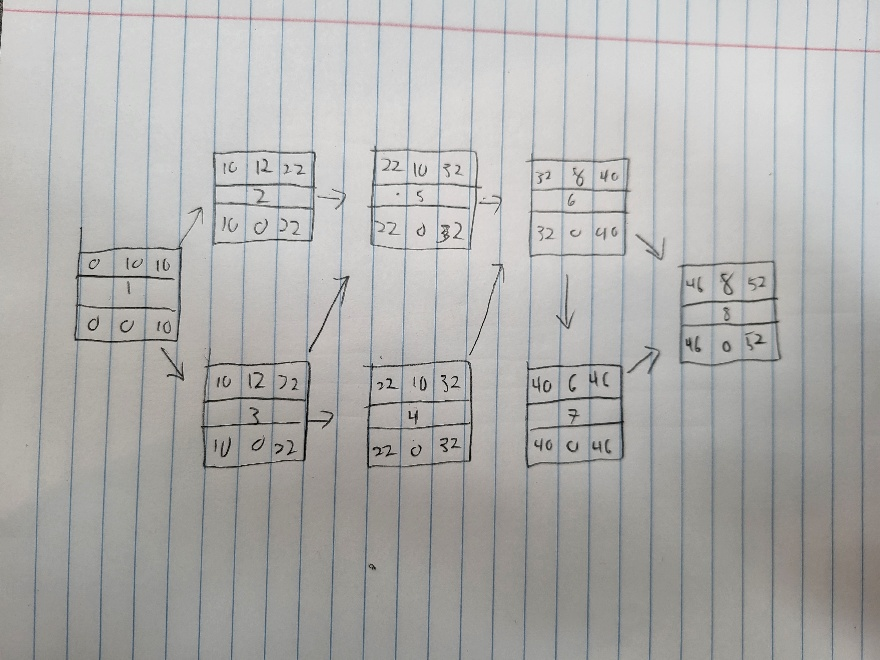 0 10 10
1
0 0 10
10 12 22
2
10 0 22
10 12 22
3
10 0 22
22 10 32
5
22 0 32
22 10 32
4
22 0 32
32 8 40
6
32 0 40
40 6 46
7
40 0 46
46 8 52
8
46 0 52